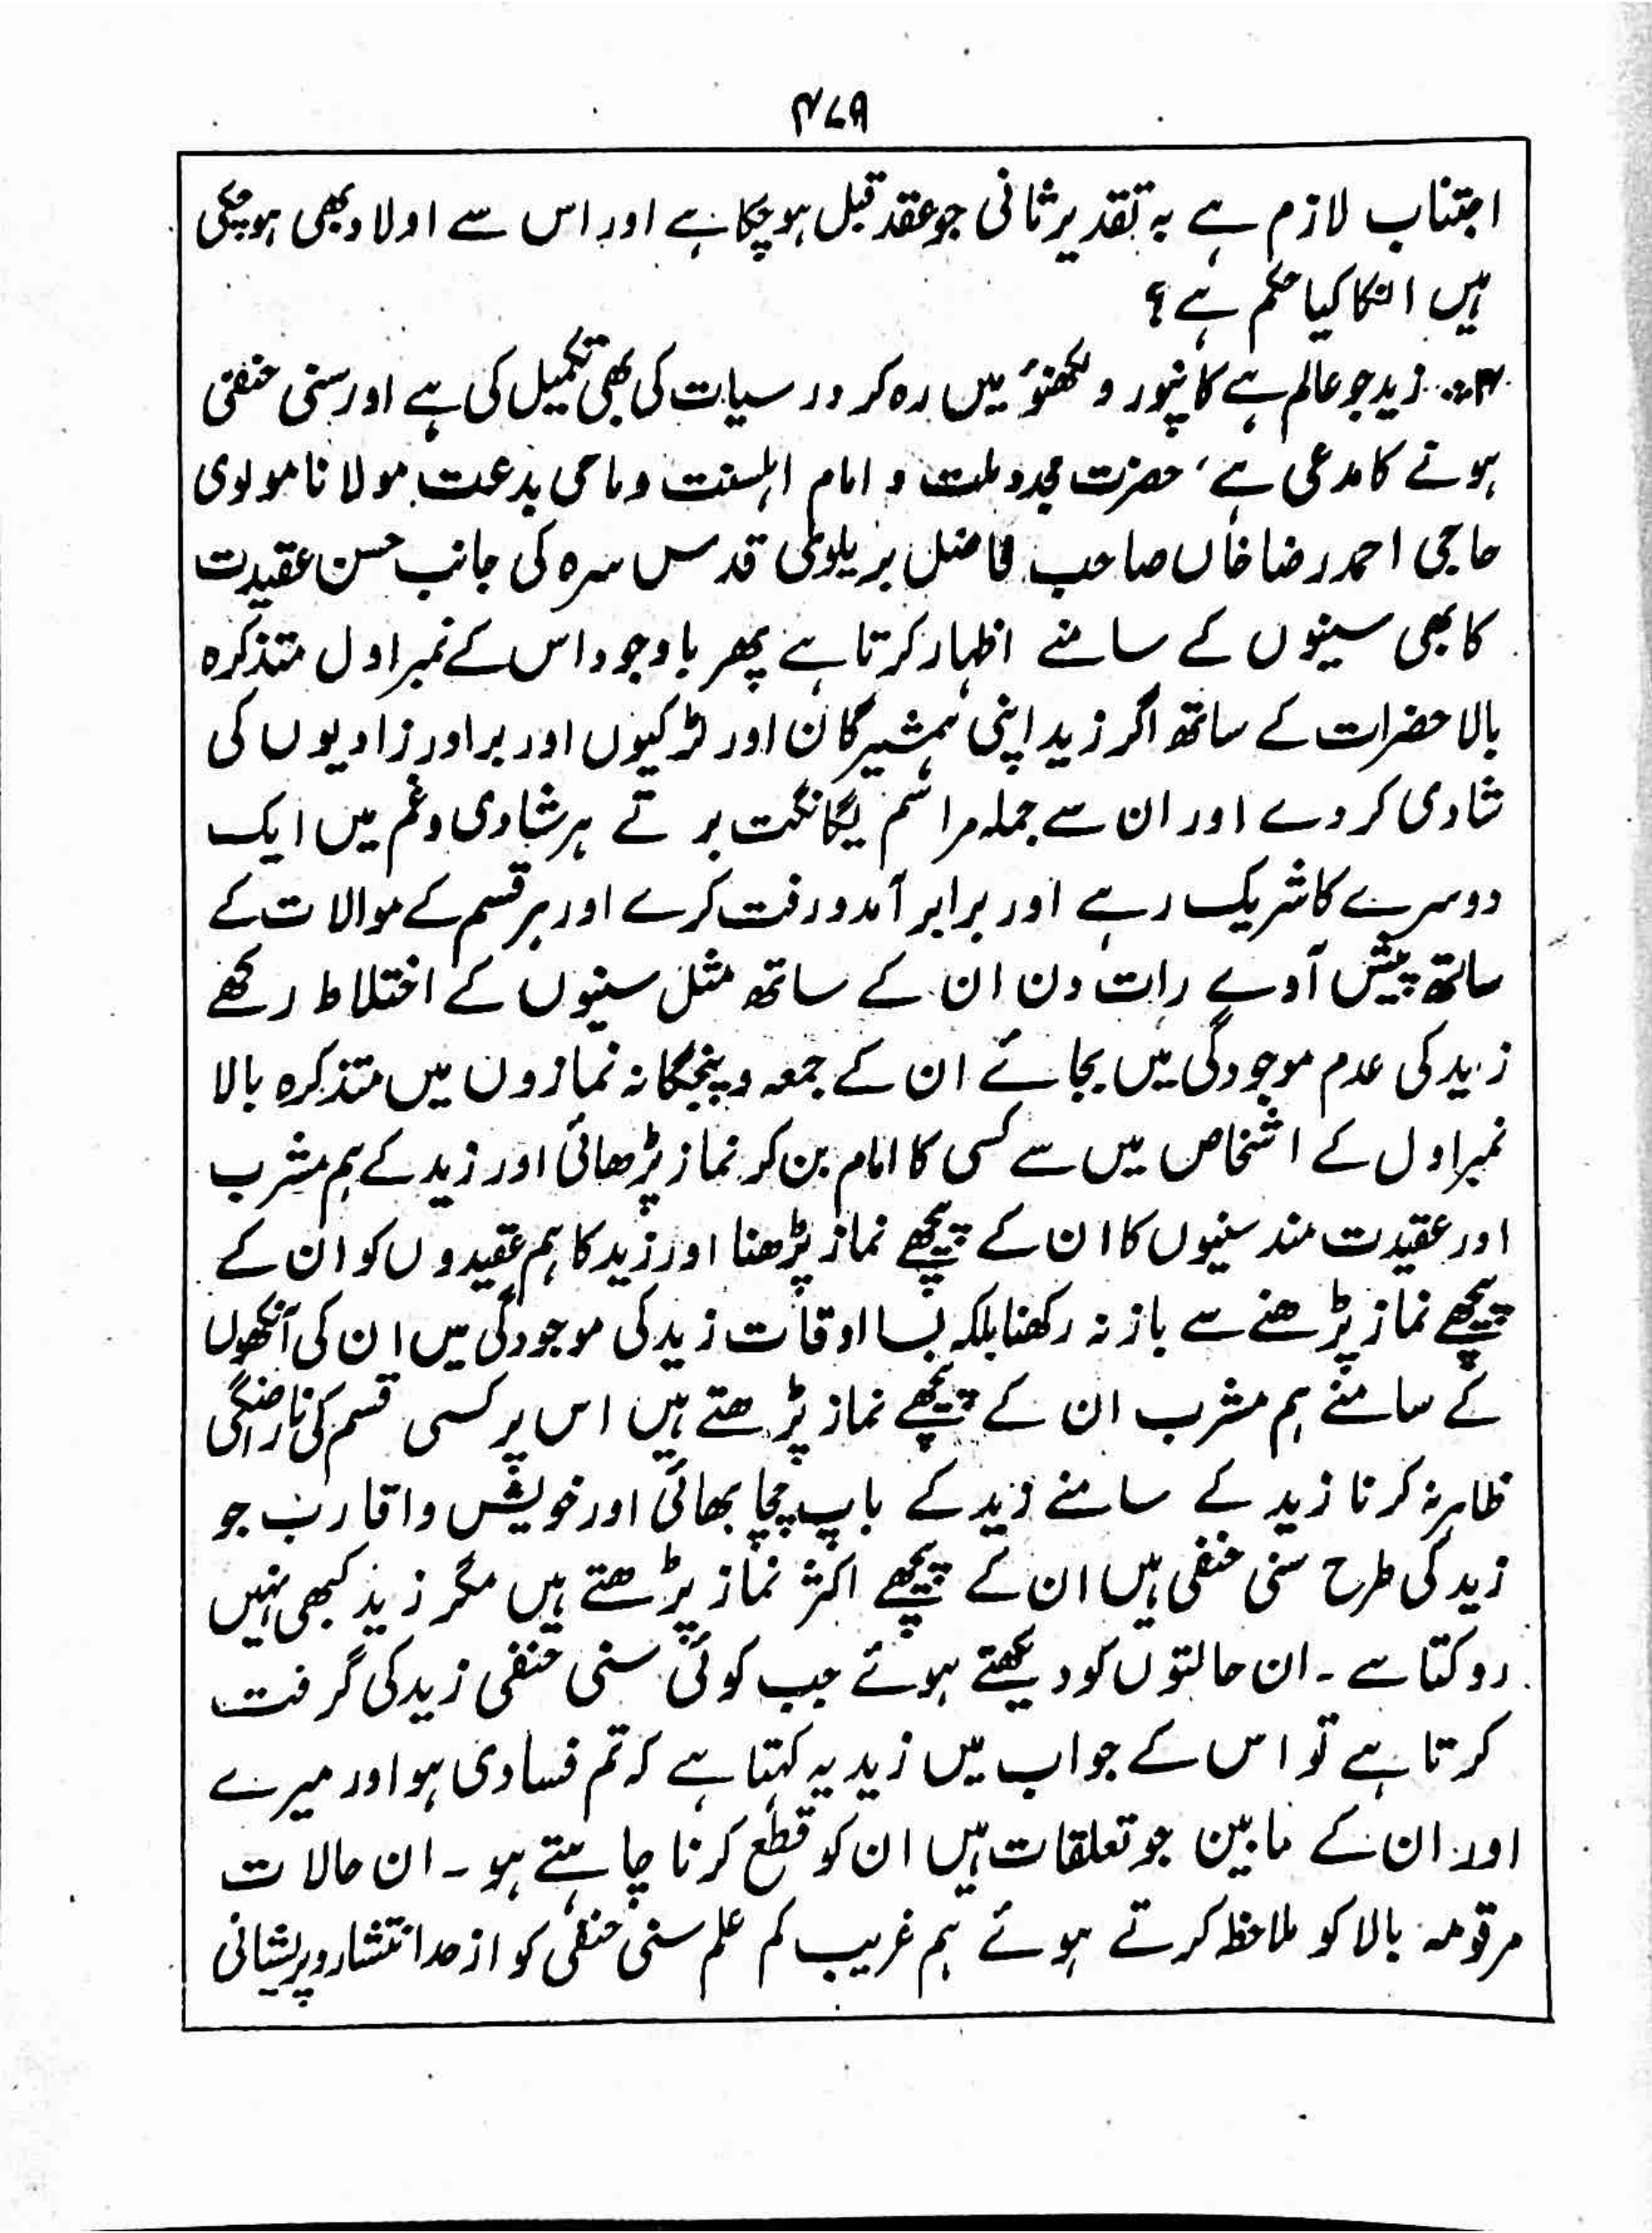 ۴۷۹
اجتناب لازم ہے بہ تقدیر ثانی جو عقد قبل ہو چکا ہے اور اس سے اولاد بھی ہو چکی
ہیں انکا کیا حکم ہے ؟
زید جو عالم ہے کانپور و لکھنؤ میں رہ کر درسیات کی بھی تکمیل کی ہے اور سنی حنفی
ہونے کا مدعی ہے، حضرت مجدد ملت و امام اہلسنت و ماحی بدعت مولانا مولوی
حاجی احمد رضا خاں صاحب فاضل بریلوی قدس سرہ کی جانب حسن عقیدت
کا بھی سنیوں کے سامنے اظہار کرتا ہے پھر باوجود اس کے نمبر اول متذکرہ
بالا حضرات کے ساتھ اگر زید اپنی ہمشیرگان اور لڑکیوں اور برادرزادیوں کی
شادی کر دے اور ان سے جملہ مراسم یگانگت برتے ہر شادی و غم میں ایک
دوسرے کا شریک رہے اور برابر آمد و رفت کرے اور ہر قسم کے موالات کے
ساتھ پیش آوے رات دن ان کے ساتھ مثل سنیوں کے اختلاط رکھے
زید کی عدم موجودگی میں بجائے ان کے جمعہ و پنجگانہ نمازوں میں متذکرہ بالا
نمبر اول کے اشخاص میں سے کسی کا امام بن کر نماز پڑھائی اور زید کے ہم مشرب
اور عقیدت مند سنیوں کا ان کے پیچھے نماز پڑھنا اور زید کا ہم عقیدوں کو ان کے
پیچھے نماز پڑھنے سے باز نہ رکھنا بلکہ بسا اوقات زید کی موجودگی میں ان کی آنکھوں
کے سامنے ہم مشرب ان کے پیچھے نماز پڑھتے ہیں اس پر کسی قسم کی ناراضگی
ظاہر نہ کرنا زید کے سامنے زید کے باپ چچا بھائی اور خویش و اقارب جو
زید کی طرح سنی حنفی ہیں ان کے پیچھے اکثر نماز پڑھتے ہیں مگر زید کبھی نہیں
روکتا ہے ۔ ان حالتوں کو دیکھتے ہوئے جب کوئی سنی حنفی زید کی گرفت
کرتا ہے تو اس کے جواب میں زید یہ کہتا ہے کہ تم فسادی ہو اور میرے
اور ان کے مابین جو تعلقات ہیں ان کو قطع کرنا چاہتے ہو ۔ ان حالات
مرقومہ بالا کو ملاحظہ کرتے ہوئے ہم غریب کم علم سنی حنفی کو از حد انتشار و پریشانی